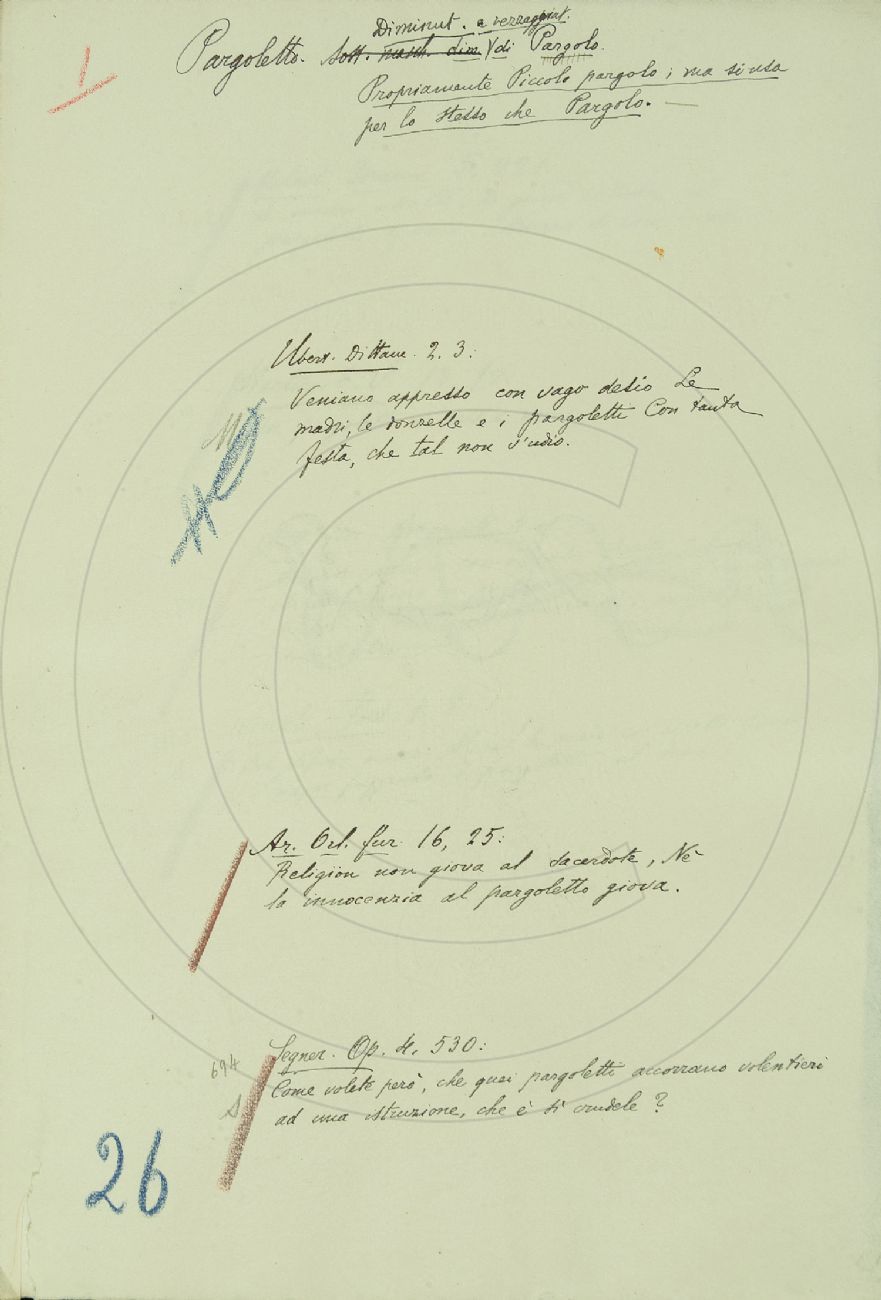 Diminut. e vezzeggiat.
Pargoletto. Sost. masch. dim. di Pargolo.
Propriamente Piccolo pargolo; ma si usa
per lo stesso che Pargolo. —
Ubert. Dittam. 2. 3:
Veniano appresso con vago desio Le
M
madri, le donzelle e i pargoletti Con tanta
festa, che tal non s'udio.
Ar. Orl. fur. 16, 25:
Religïon non giova al sacerdote, Nè
la innocenzia al pargoletto giova.
Segner. Op. 4, 530:
694
Come volete però, che quei pargoletti accorrano volentieri
S
ad una istruzione, che è sì crudele?
26